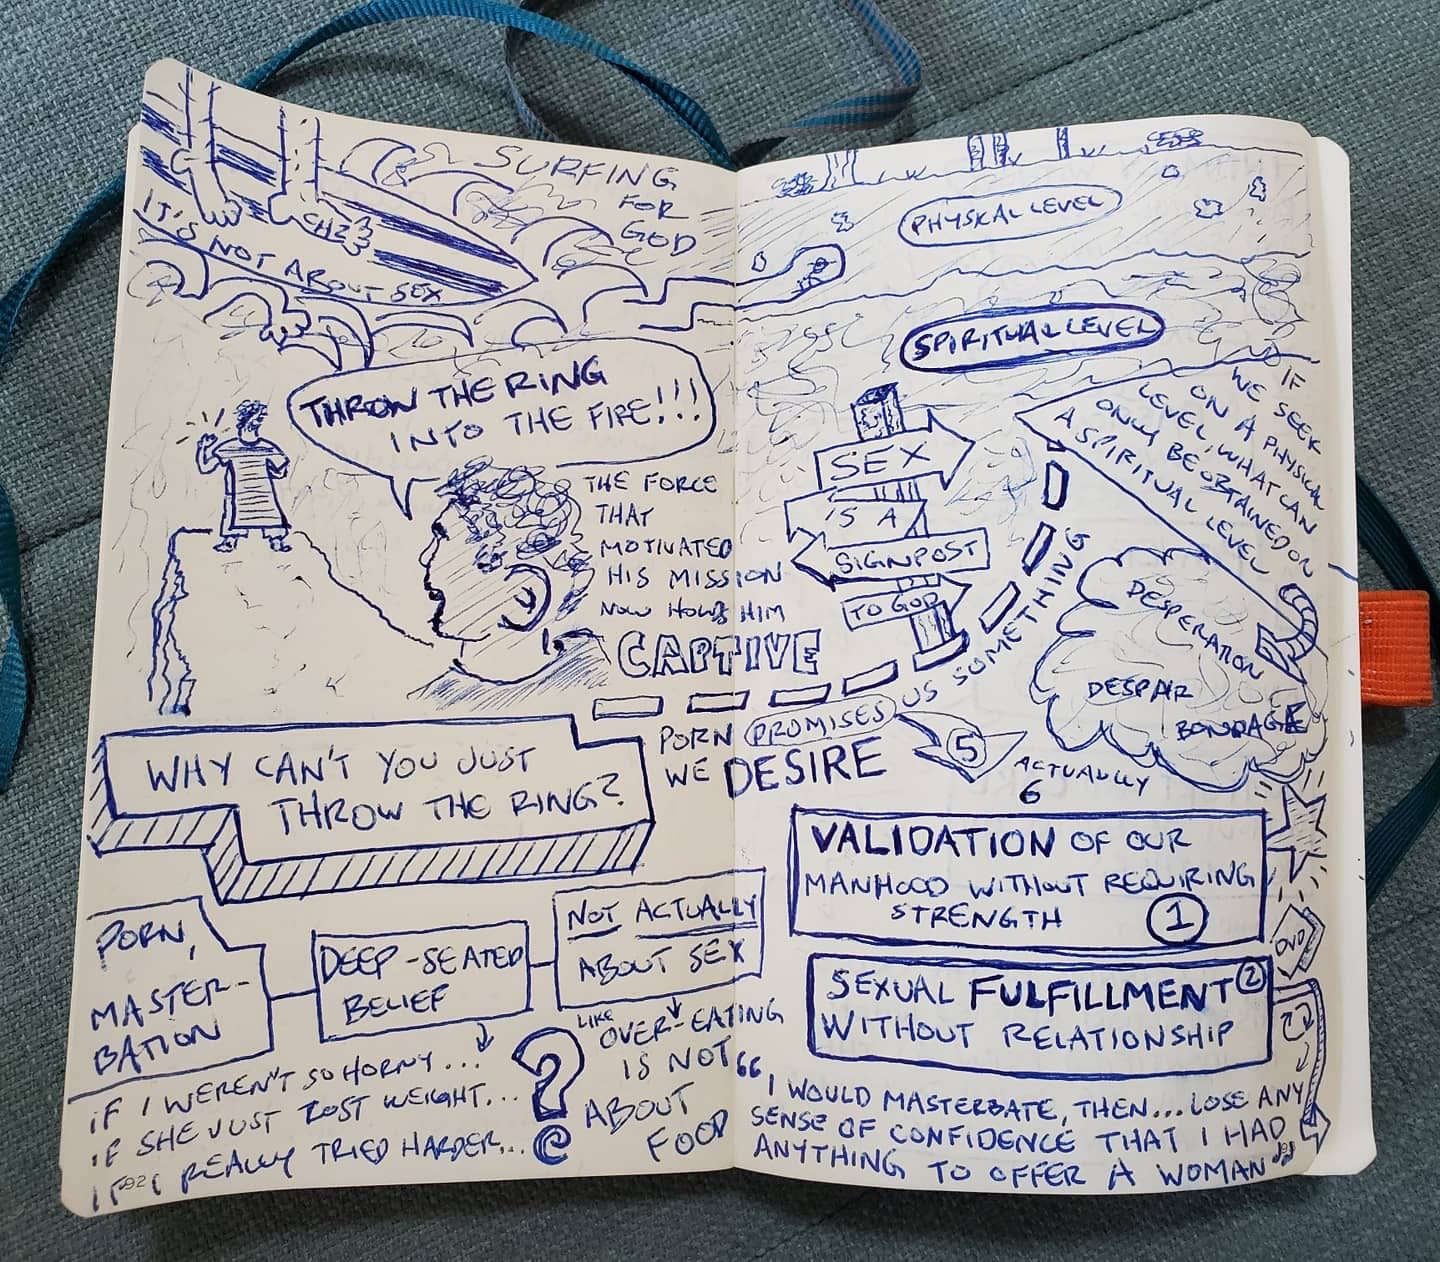 SURFING
FOR
GOD
CH2
IT'S NOT ABOUT SEX
THROW THE RING
INTO THE FIRE!!!
THE FORCE
THAT
MOTIVATED
HIS MISSION
NOW HOLDS HIM
CAPTIVE
WHY CAN'T YOU JUST
THROW THE RING?
PORN,
MASTER-
BATION
DEEP-SEATED
BELIEF
NOT ACTUALLY
ABOUT SEX
IF I WEREN'T SO HORNY...
IF SHE JUST LOST WEIGHT...
IF I REALLY TRIED HARDER...
?
LIKE
OVER-EATING
IS NOT
ABOUT
FOOD
92
PHYSICAL LEVEL
SPIRITUAL LEVEL
SEX
IS A
SIGNPOST
TO GOD
IF
WE SEEK
ON A PHYSICAL
LEVEL, WHAT CAN
ONLY BE OBTAINED ON
A SPIRITUAL LEVEL
DESPERATION
DESPAIR
BONDAGE
PORN PROMISES US SOMETHING
WE DESIRE
5
ACTUALLY
6
VALIDATION OF OUR
MANHOOD WITHOUT REQUIRING
STRENGTH
1
SEXUAL FULFILLMENT 2
WITHOUT RELATIONSHIP
DVD
"I WOULD MASTERBATE, THEN... LOSE ANY
SENSE OF CONFIDENCE THAT I HAD
ANYTHING TO OFFER A WOMAN"